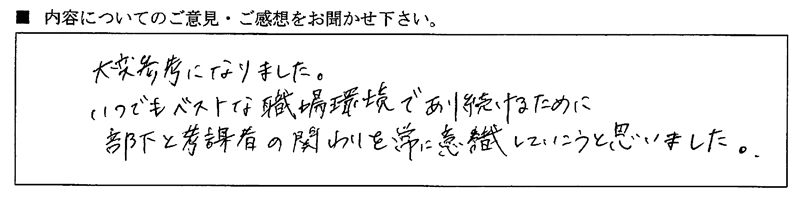 ■ 内容についてのご意見・ご感想をお聞かせ下さい。
大変参考になりました。
いつでもベストな職場環境であり続けるために
部下と考課者の関わりを常に意識していこうと思いました。